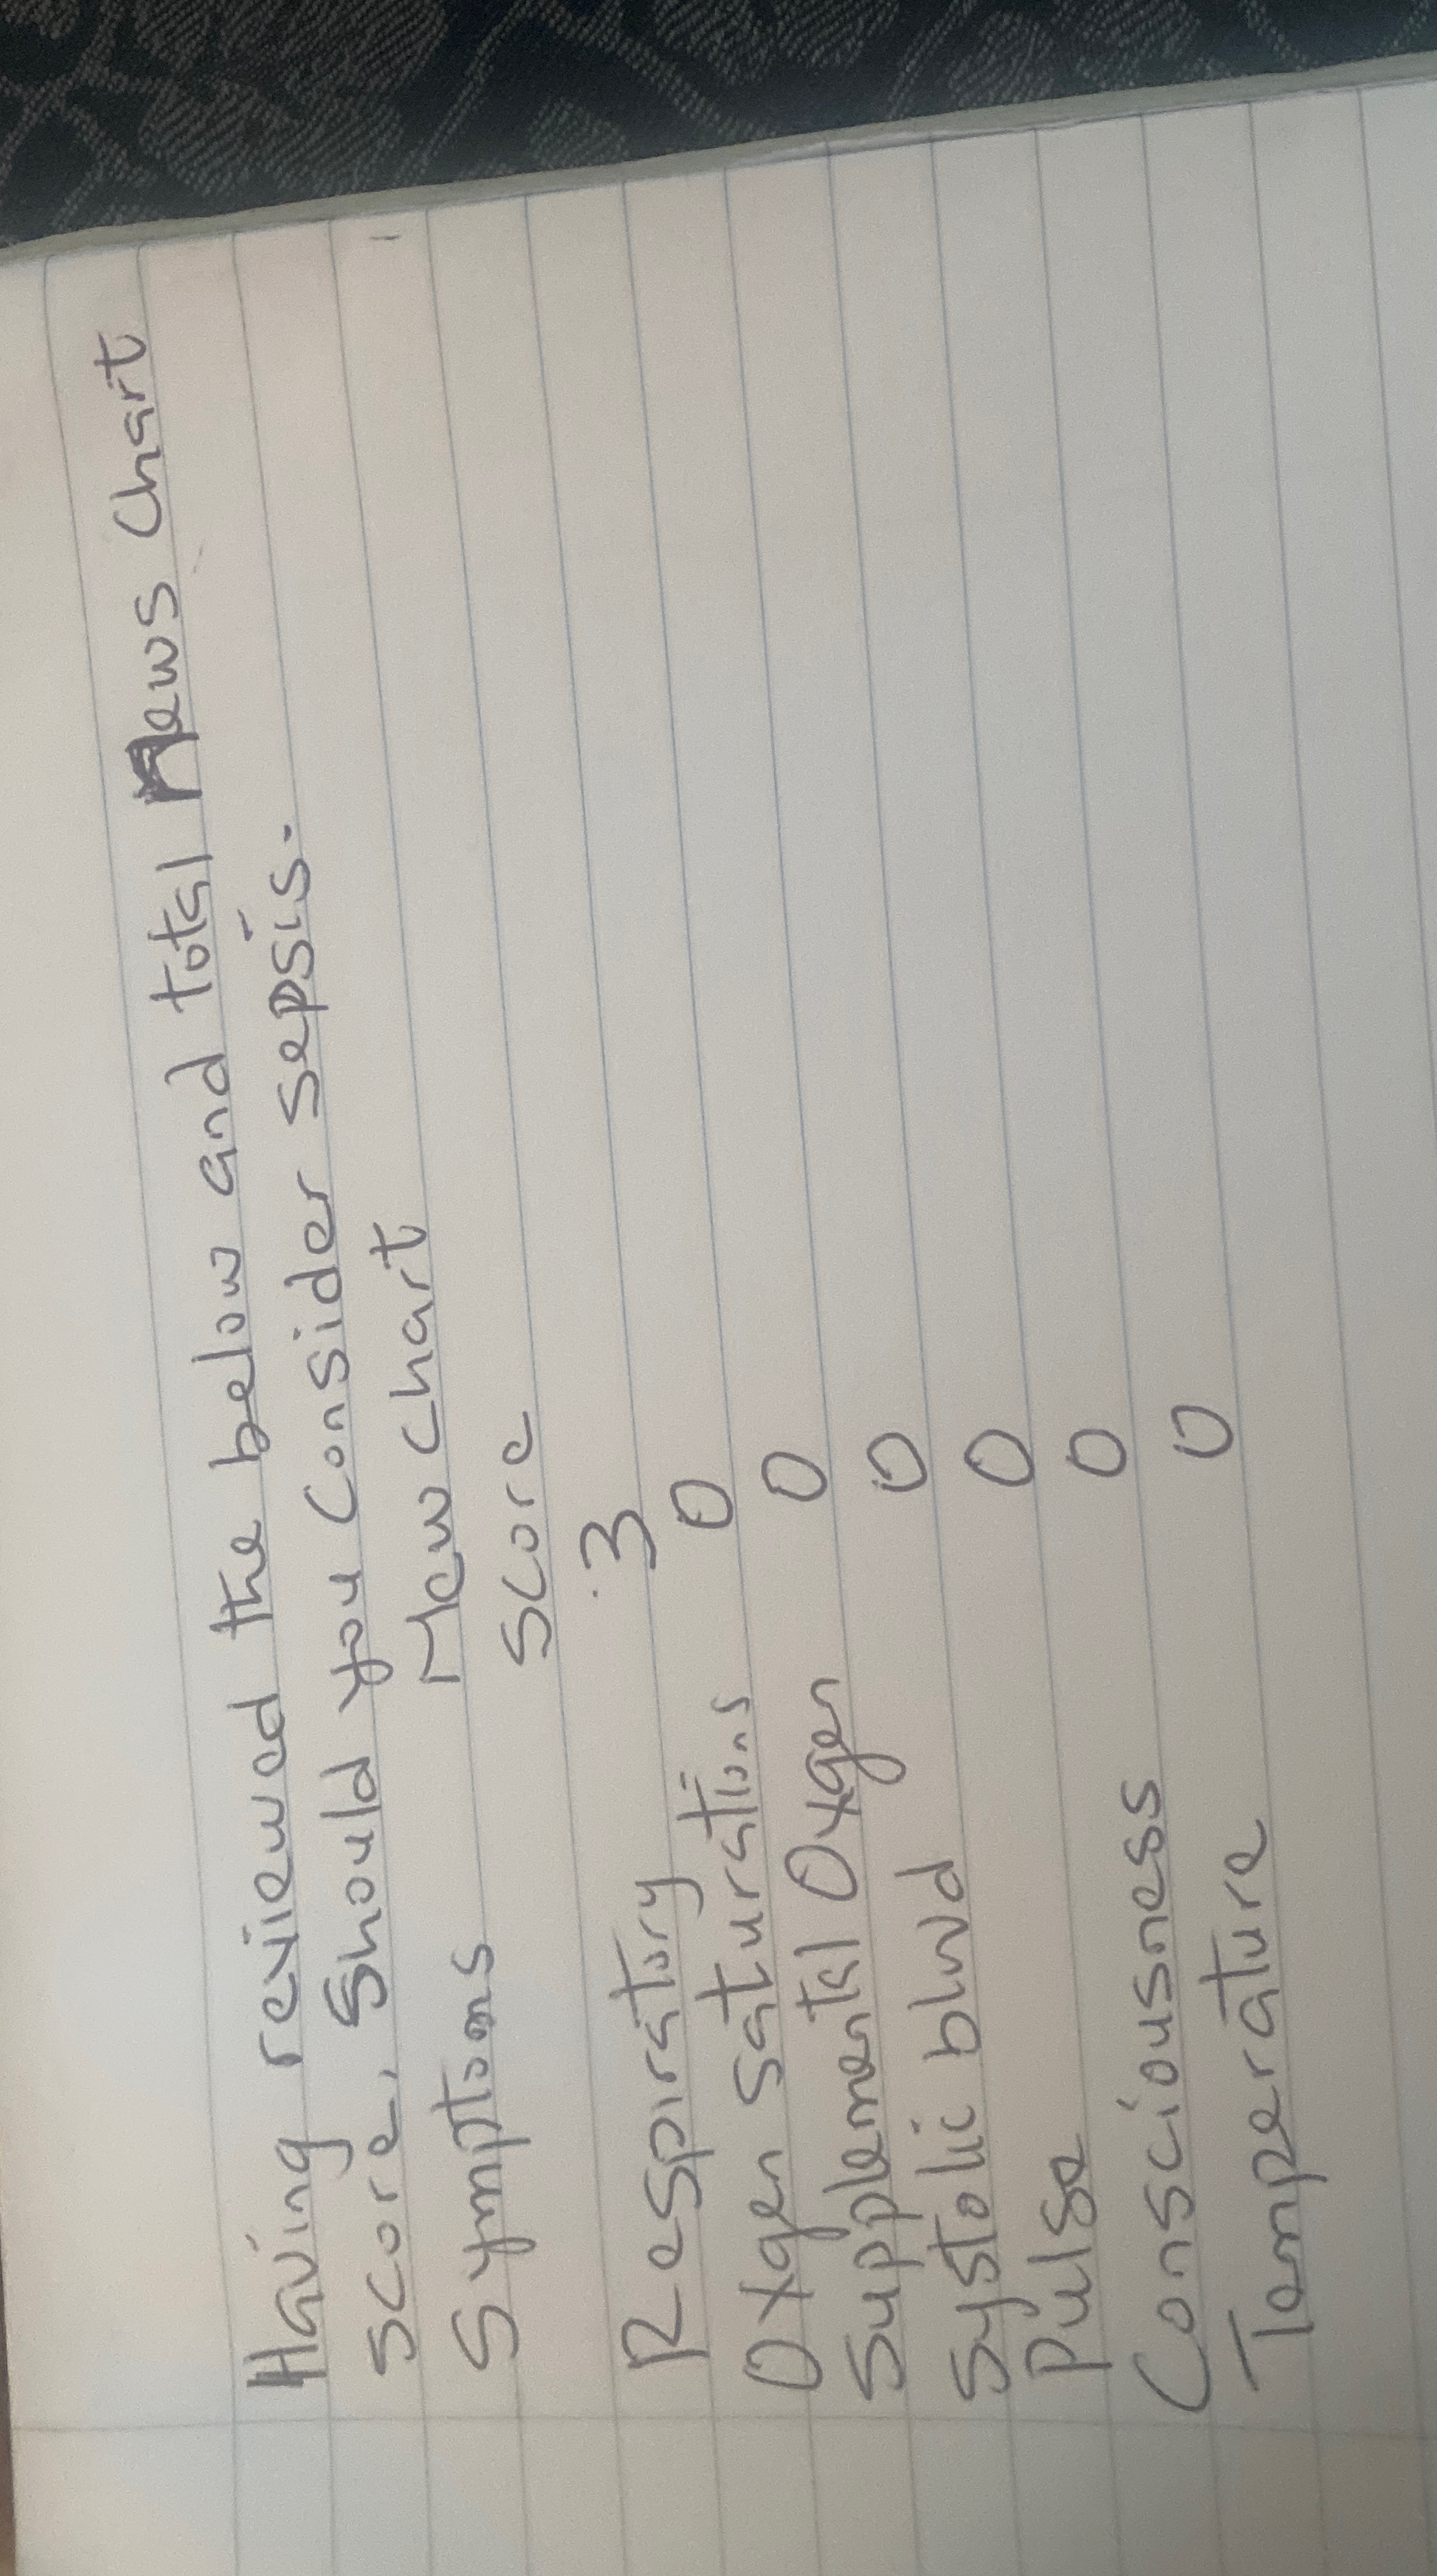 Having reviewed the below and total Mews chart
score, should you consider sepsis.
Symptoms Mew chart
score
Respiratory 3
Oxgen saturations 0
Supplemental Oxgen 0
Systolic blood 0
Pulse 0
Consciousness 0
Temperature 0